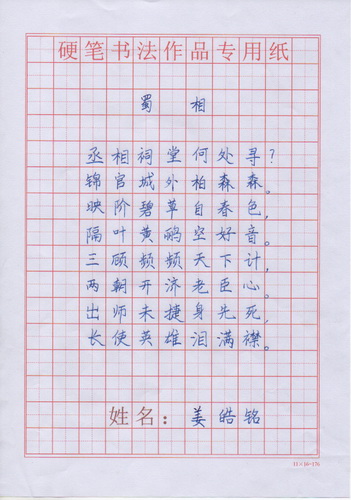 硬笔书法作品专用纸
蜀相
丞相祠堂何处寻?
锦官城外柏森森。
映阶碧草自春色,
隔叶黄鹂空好音。
三顾频频天下计,
两朝开济老臣心。
出师未捷身先死,
长使英雄泪满襟。
姓名:姜皓铭